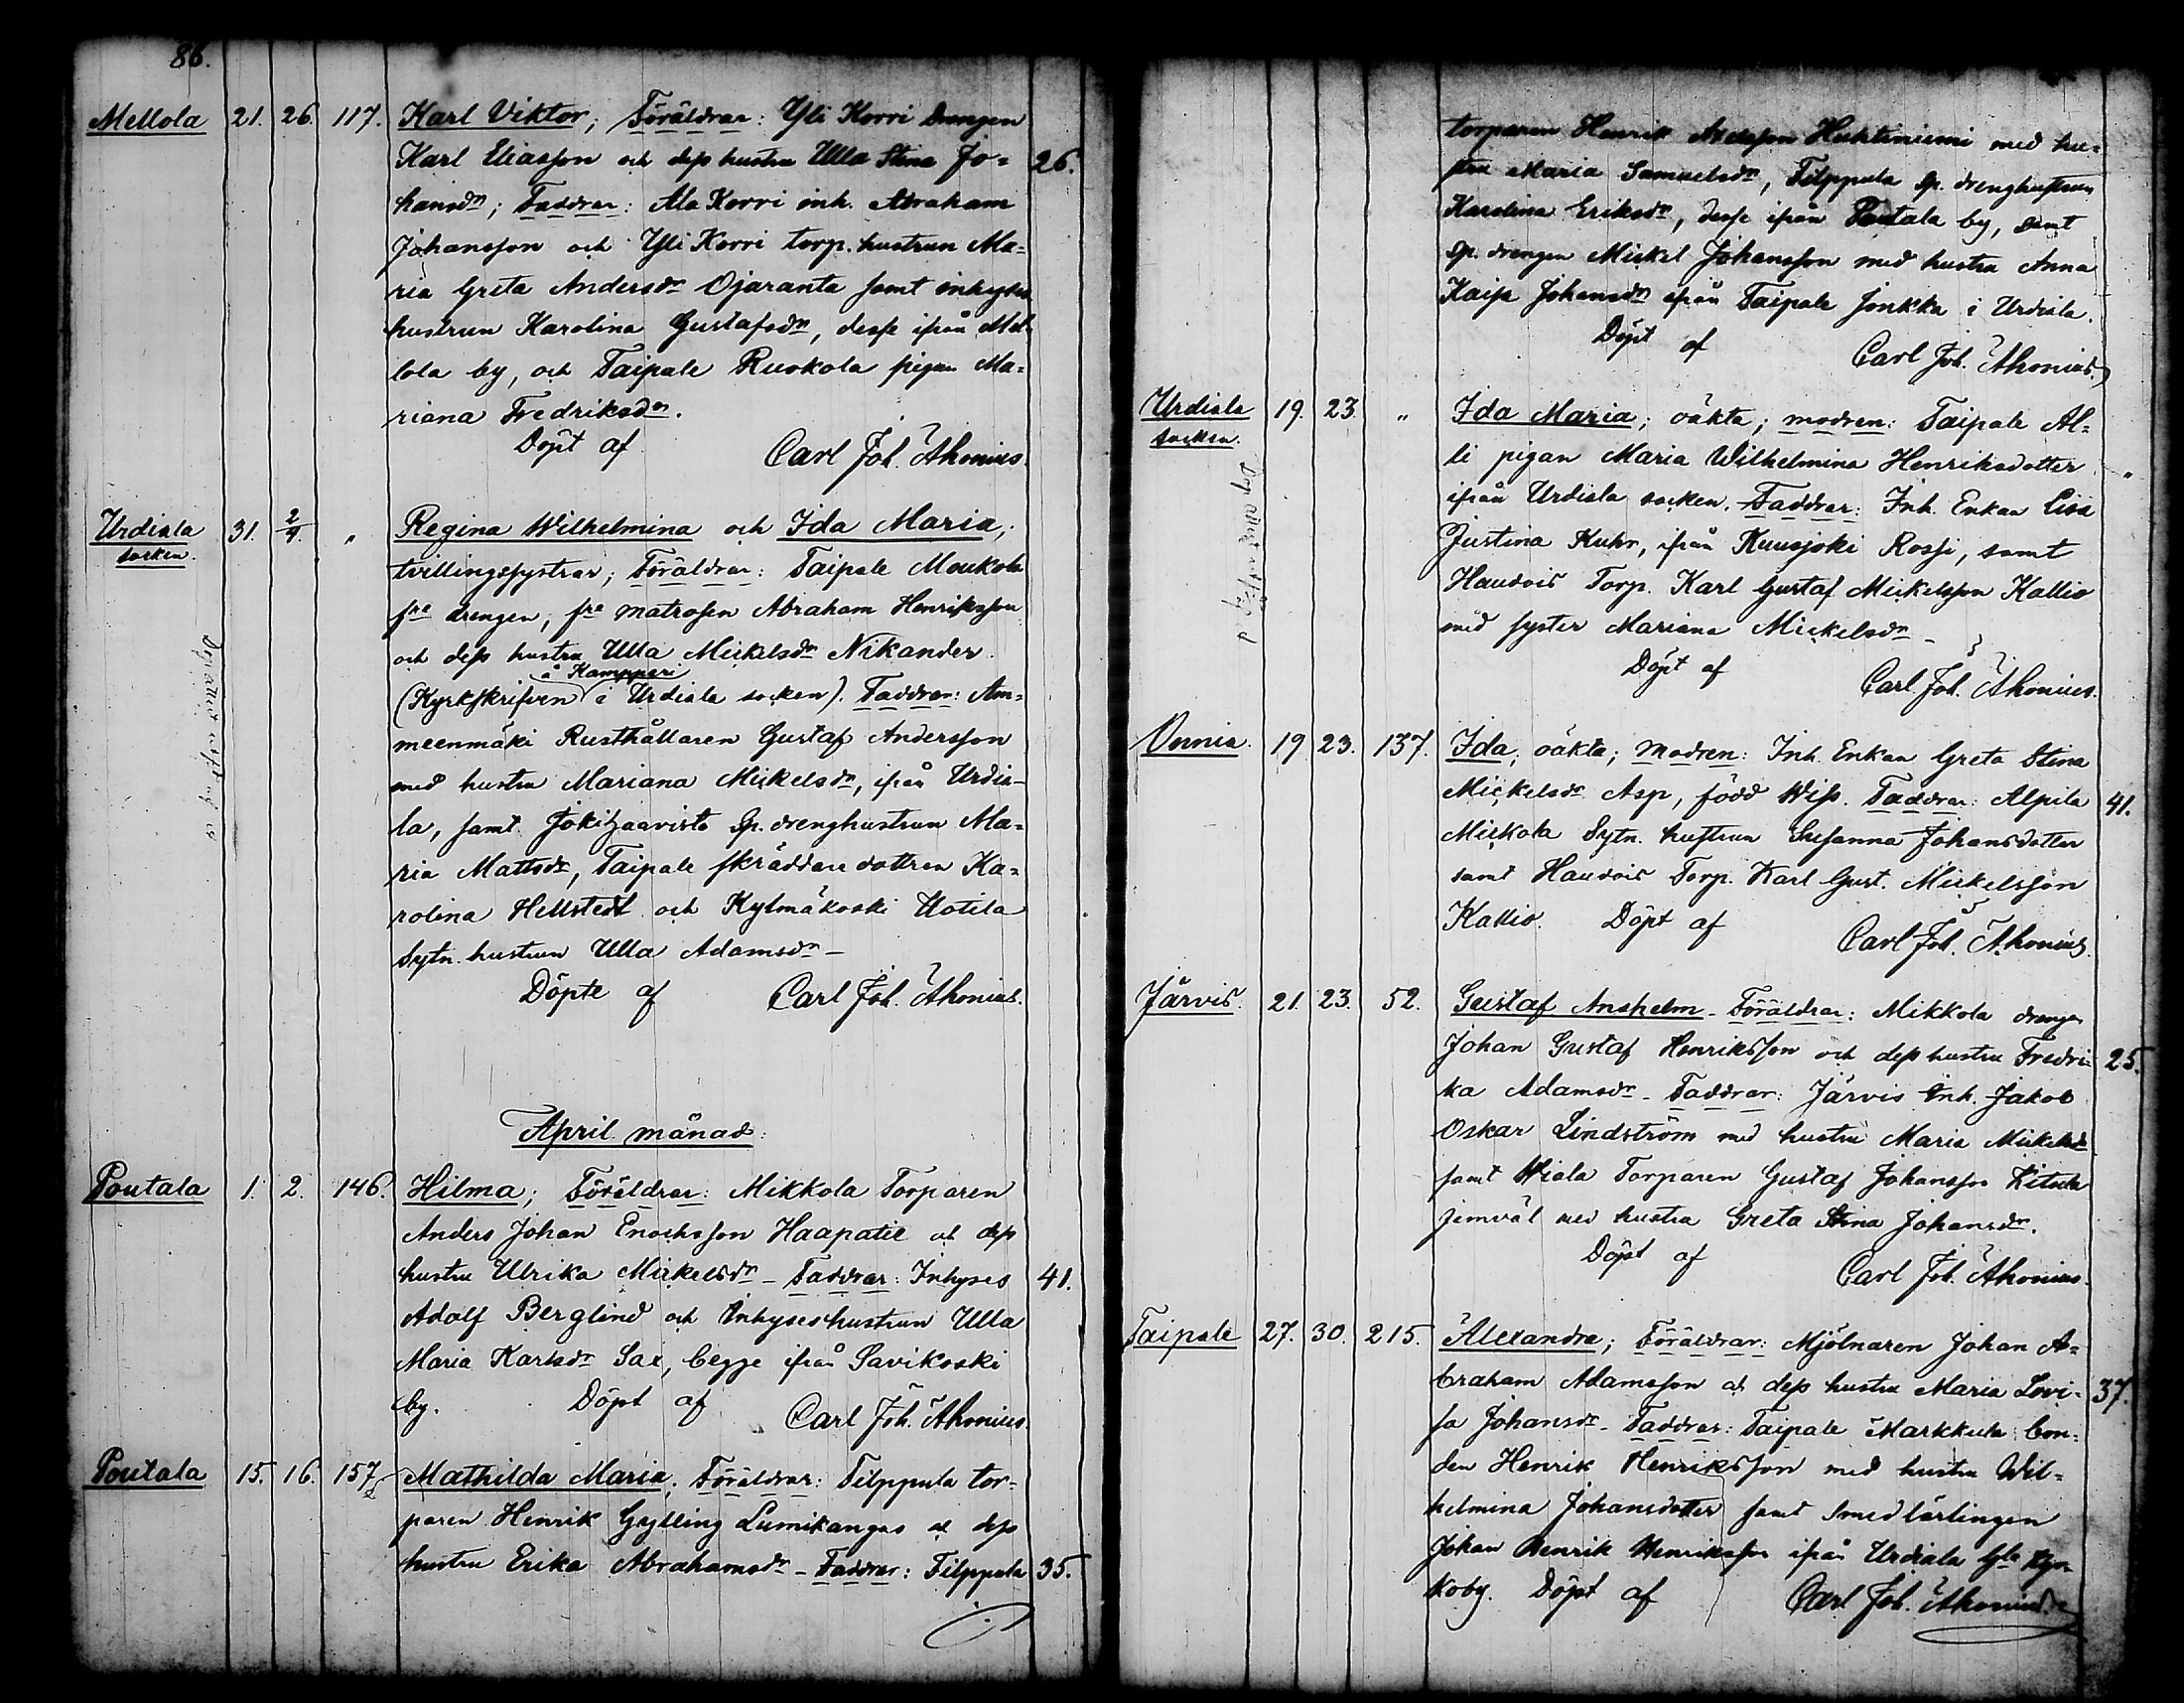 86.
Mellola 21. 26. 117. Karl Viktor; Föräldrar: Yli Korri Drengen
Karl Eliasson och dess hustru Ulla Stina Jo= 26.
hansdr; Faddrar: Ala Korri inh. Abraham
Johansson och Yli Korri torp. hustrun Ma=
ria Greta Andersdr Ojaranta samt inhyses
hustrun Karolina Gustafsdr, desse ifrån Mel
lola by, och Taipale Ruokola pigan Ma=
riana Fredriksdr.
Döpt af Carl Joh. Ahonius.
Urdiala 31. 2/4. " Regina Wilhelmina och Ida Maria;
socken.
tvillingssystrar; Föräldrar: Taipale Moukola
fre drengen, fre matrosen Abraham Henriksson
och dess hustru Ulla Mickelsdr Nikander
å Kamppari
(Kyrkskrifven i Urdiala socken). Faddrar: Am=
meenmäki Rusthållaren Gustaf Andersson
med hustru Mariana Mickelsdr, ifrån Urdia-
la, samt Sp. drenghustrun Ma=
ria Mattsdr, Taipale skräddare dottren Ka=
rolina Hellstedt och Kylmäkoski Uotila
Sytn. hustrun Ulla Adamsdr –
Döpte af Carl Joh. Ahonius.
April månad:
Poutala 1. 2. 146. Hilma; Föräldrar: Mikkola Torparen
Anders Johan Enochsson Haapatie och dess
hustru Ulrika Mickelsdr – Faddrar: Inhyses 41.
Adolf Berglind och Inhyseshustrun Ulla
Maria Karlsdr Sax, begge ifrån Savikoski
by. Döpt af Carl Joh. Ahonius.
Poutala 15. 16. 157 Mathilda Maria; Föräldrar: Filppula tor=
paren Henrik Gylling Lumikangas och dess
hustru Erika Abrahamsdr – Faddrar: Filppula 35.
torparen Henrik Huhtiniemi med hu=
stru Maria Samuelsdr, Filppula sp. drenghustrun
Karolina Eriksdr, desse ifrån Poutala by, samt
sp. drengen Mickel Johansson med hustru Anna
Kaisa Johansdr ifrån Taipale Jonkka i Urdiala.
Döpt af Carl Joh. Ahonius.
Urdiala 19. 23. " Ida Maria; oäkta; modren: Taipale Al=
socken.
li pigan Maria Wilhelmina Henriksdotter "
ifrån Urdiala socken. Faddrar: Inh. Enkan Lisa
Justina Kuhr, ifrån Kuusjoki Rossi, samt
Haudois Torp. Karl Gustaf Mickelsson Kallio
med syster Mariana Mickelsdr –
Döpt af Carl Joh. Ahonius.
Vennia. 19 23. 137. Ida, oäkta; Modren: Inh. Enkan Greta Stina
Mickelsdr Asp, född Wiss. Faddrar: Alpila 41.
Mickola Sytn. hustrun Susanna Johansdotter
samt Haudois Torp. Karl Gust. Mickelsson
Kallio. Döpt af Carl Joh. Ahonius.
Järvis. 21. 23. 52. Gustaf Anshelm – Föräldrar: Mikkola drengen
Johan Gustaf Henriksson och dess hustru Fredri= 25.
ka Adamsdr – Faddrar: Järvis Inh. Jakob
Oskar Lindström med hustru Maria Mickelsdr
samt Wiala Torparen Gustaf Johansson
jemväl med hustru Greta Stina Johansdr.
Döpt af Carl Joh. Ahonius.
Taipale 27. 30. 215. Alexandra; Föräldrar: Mjölnaren Johan A=
braham Adamsson och dess hustru Maria Lovi= 37.
sa Johansdr – Faddrar: Taipale Markkula bon=
den Henrik Henriksson med hustru Wil=
helmina Johansdotter samt Smedlärlingen
Johan Henrik Henriksson ifrån Urdiala
koby. Döpt af Carl Joh. Ahonius.